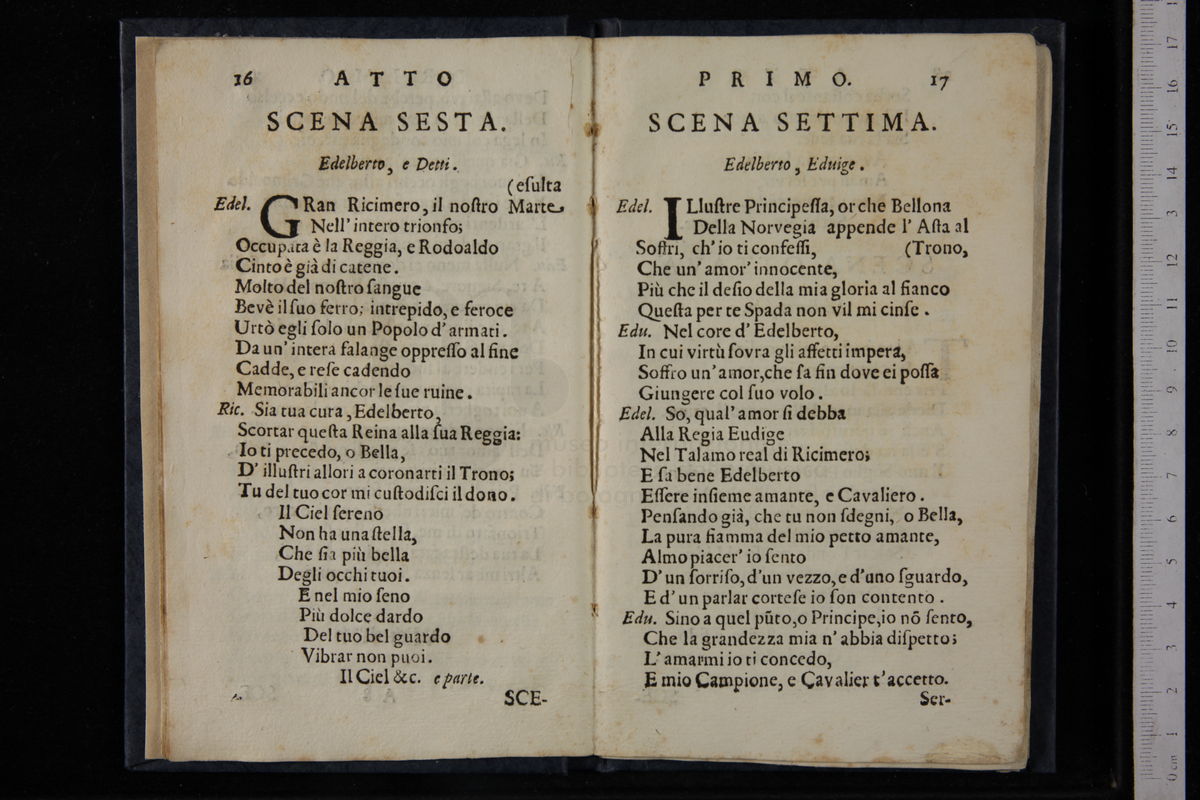 16 ATTO
SCENA SESTA.
Edelberto, e Detti.
(eſulta
Edel. GRan Ricimero, il noſtro Marte
Nell' intero trionfo;
Occupata è la Reggia, e Rodoaldo
Cinto è già di catene.
Molto del noſtro ſangue
Bevè il ſuo ferro; intrepido, e feroce
Urtò egli ſolo un Popolo d' armati.
Da un' intera falange oppreſſo al fine
Cadde, e reſe cadendo
Memorabili ancor le ſue ruine.
Ric. Sia tua cura, Edelberto,
Scortar queſta Reina alla ſua Reggia:
Io ti precedo, o Bella,
D' illuſtri allori a coronarti il Trono;
Tu del tuo cor mi cuſtodiſci il dono.
Il Ciel ſereno
Non ha una ſtella,
Che ſia più bella
Degli occhi tuoi.
E nel mio ſeno
Più dolce dardo
Del tuo bel guardo
Vibrar non puoi.
Il Ciel &c. e parte.
SCE-
PRIMO. 17
SCENA SETTIMA.
Edelberto, Eduige.
Edel. ILluſtre Principeſſa, or che Bellona
Della Norvegia appende l' Aſta al
Soffri, ch' io ti confeſſi, (Trono,
Che un' amor' innocente,
Più che il deſio della mia gloria al fianco
Queſta per te Spada non vil mi cinſe.
Edu. Nel core d' Edelberto,
In cui virtù ſovra gli affetti impera,
Soffro un' amor, che ſa fin dove ei poſſa
Giungere col ſuo volo.
Edel. So, qual' amor ſi debba
Alla Regia Eudige
Nel Talamo real di Ricimero;
E ſa bene Edelberto
Eſſere inſieme amante, e Cavaliero.
Penſando già, che tu non ſdegni, o Bella,
La pura fiamma del mio petto amante,
Almo piacer' io ſento
D' un ſorriſo, d'un vezzo, e d'uno ſguardo,
E d' un parlar corteſe io ſon contento.
Edu. Sino a quel pũto, o Principe, io nõ ſento,
Che la grandezza mia n' abbia diſpetto;
L' amarmi io ti concedo,
E mio Campione, e Cavalier t'accetto.
Ser-